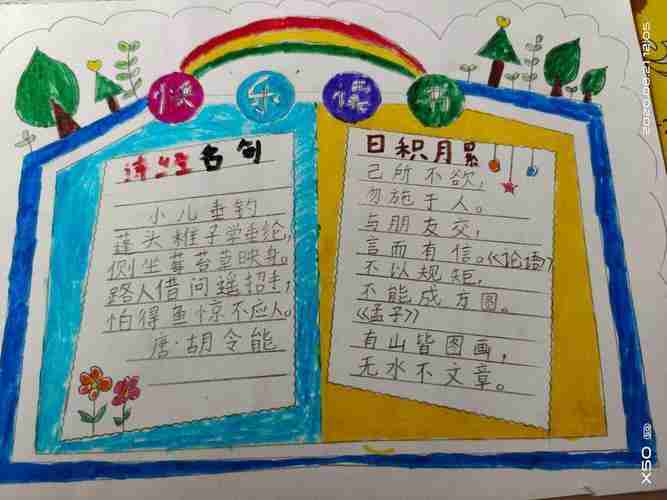 快乐读书
诗经名句
小儿垂钓
蓬头稚子学垂纶,
侧坐莓苔草映身。
路人借问遥招手,
怕得鱼惊不应人。
唐·胡令能
日积月累
己所不欲,
勿施于人。
与朋友交,
言而有信。《论语》
不以规矩,
不能成方圆。
《孟子》
有山皆图画,
无水不文章。
2020/08/21 12:05
X50 5G